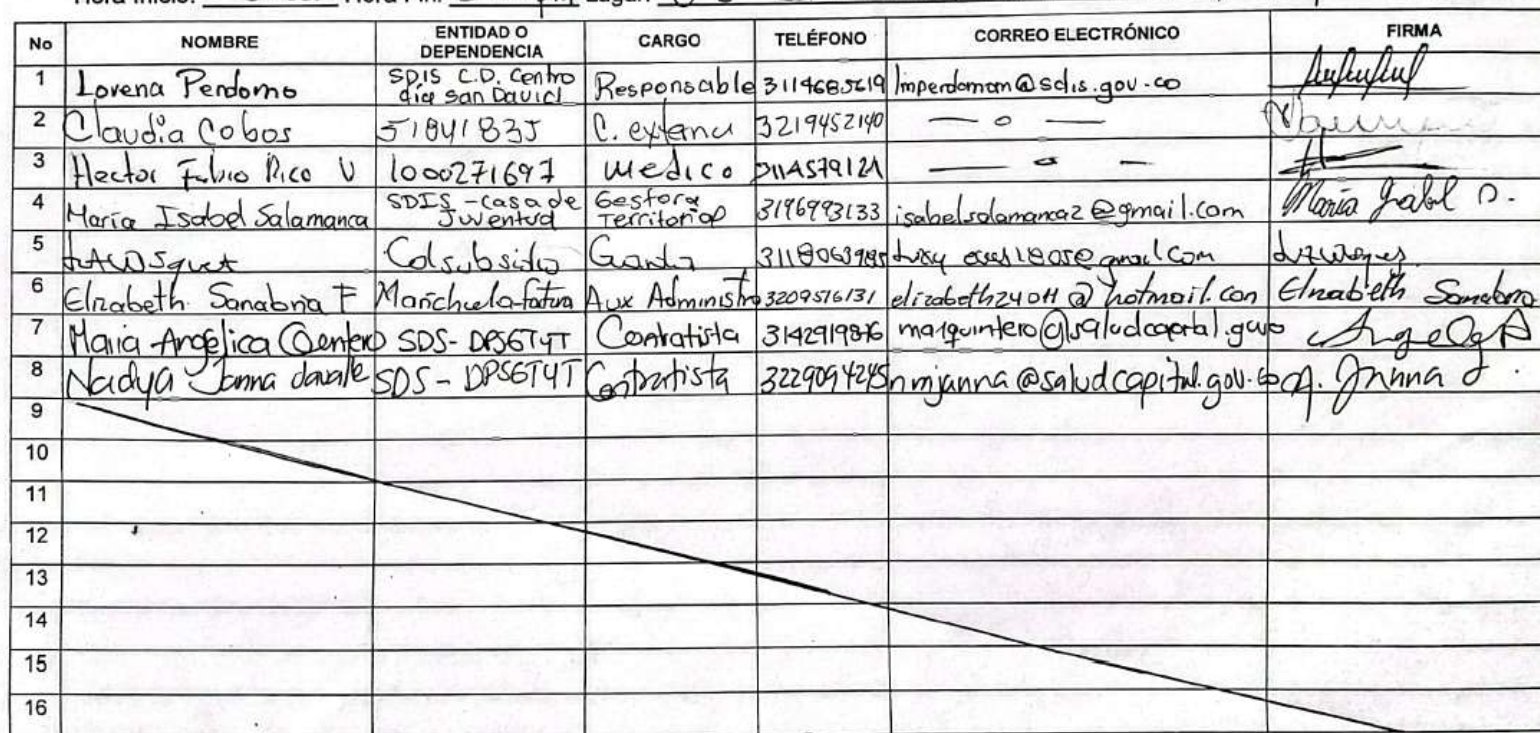 No NOMBRE ENTIDAD O DEPENDENCIA CARGO TELÉFONO CORREO ELECTRÓNICO FIRMA
1 Lorena Perdomo SDIS C.D. Centro día San David Responsable 3114685619 lmperdomom@sdis.gov.co
2 Claudia Cobos 51841835 C. externa 3219452140 — o —
3 Hector Fabio Rico V 1000271697 Medico — o —
4 Maria Isabel Salamanca SDIS - casa de Juventud Gestora Territorial 3196993133 isabelsalamanca2@gmail.com Maria Isabel S.
5 Colsubsidio
6 Elizabeth Sanabria F Aux Administra 3209516131 elizabeth2404@hotmail.con Elizabeth Sanabria
7 Maria Angelica Quintero SDS- DPSGTYT Contratista marquintero@saludcapital.gov.co
8 Nadya Janna SDS - DPSGTYT Contratista 3229094245 nmjanna@saludcapital.gov.co
9
10
11
12
13
14
15
16